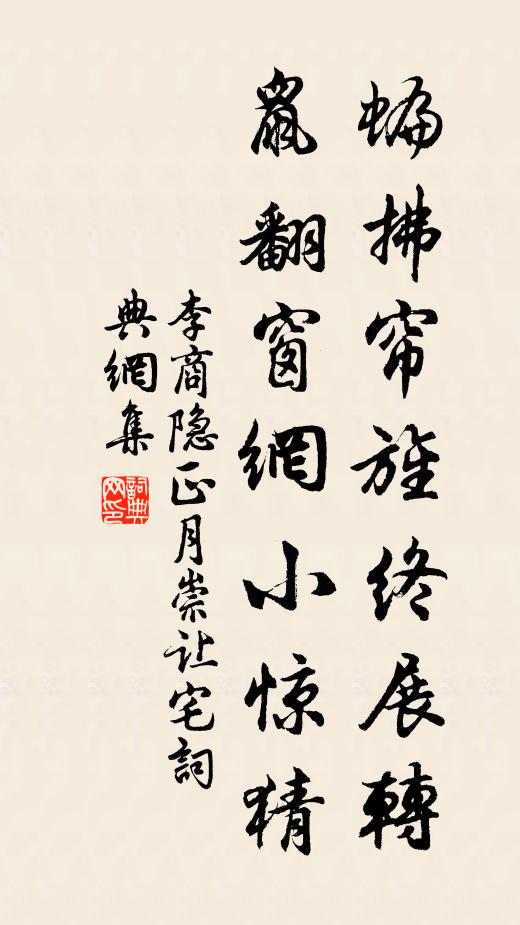 蝙拂帘旌终展轉
鼠翻窗網小惊猜
李商隐正月崇让宅詞
典網集
詞典网印